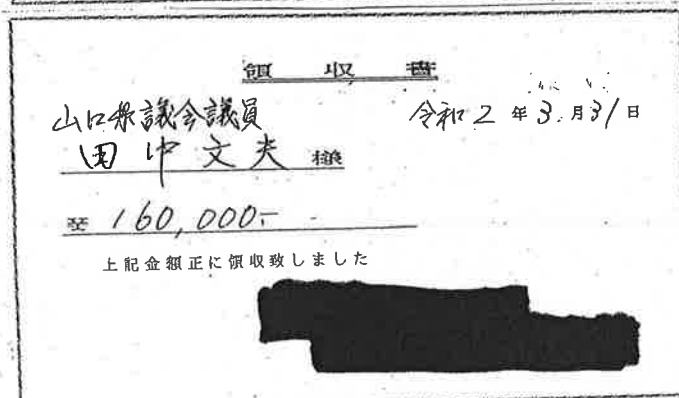 領収書
山口県議会議員
令和2年3月31日
田中文夫 様
金 160,000.-
上記金額正に領収致しました